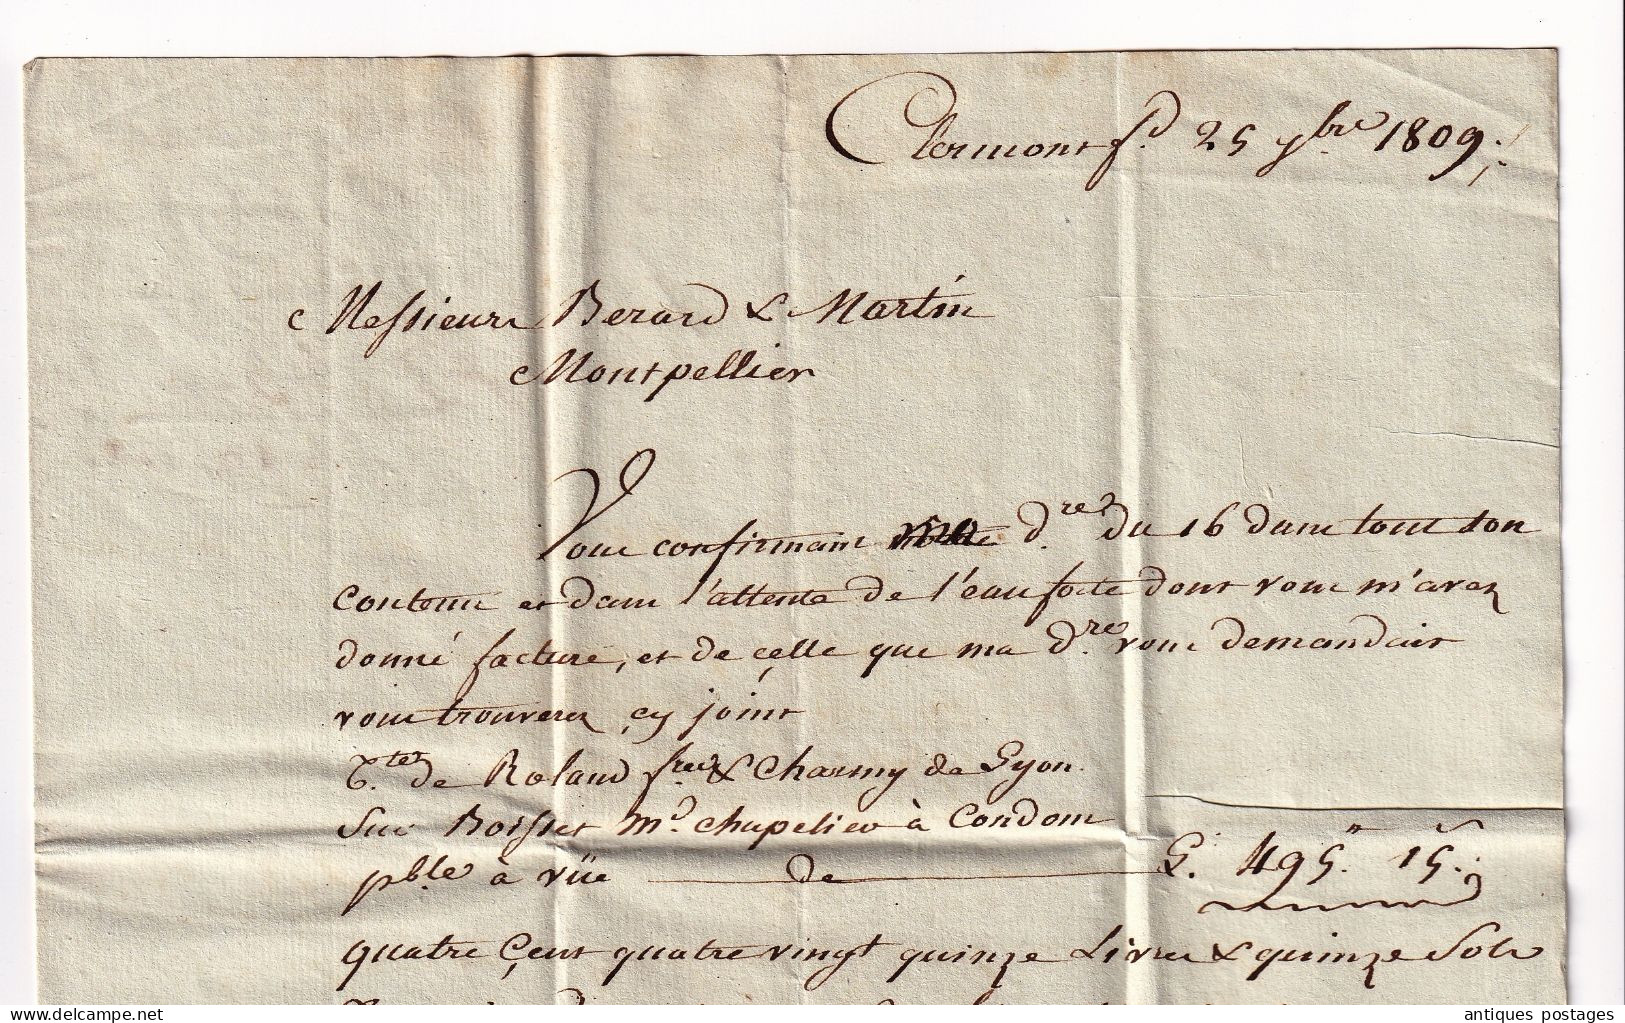 Clermont fd. 25 9bre 1809
Messieurs Berard & Martin
Montpellier
Vous confirmant ma dre. du 16 dans tout son
contenu et dans l'attente de l'eau forte dont vous m'avez
donné facture, et de çelle que ma dre. vous demandait
vous trouverez çy joint
Tte. de Roland fres & Charmy de Lyon
Sur Boisset md. chapelier à Condom
pble à vüe de L. 495" 15s.
quatre çent quatre vingt quinze Livres & quinze Sols
antiques postages